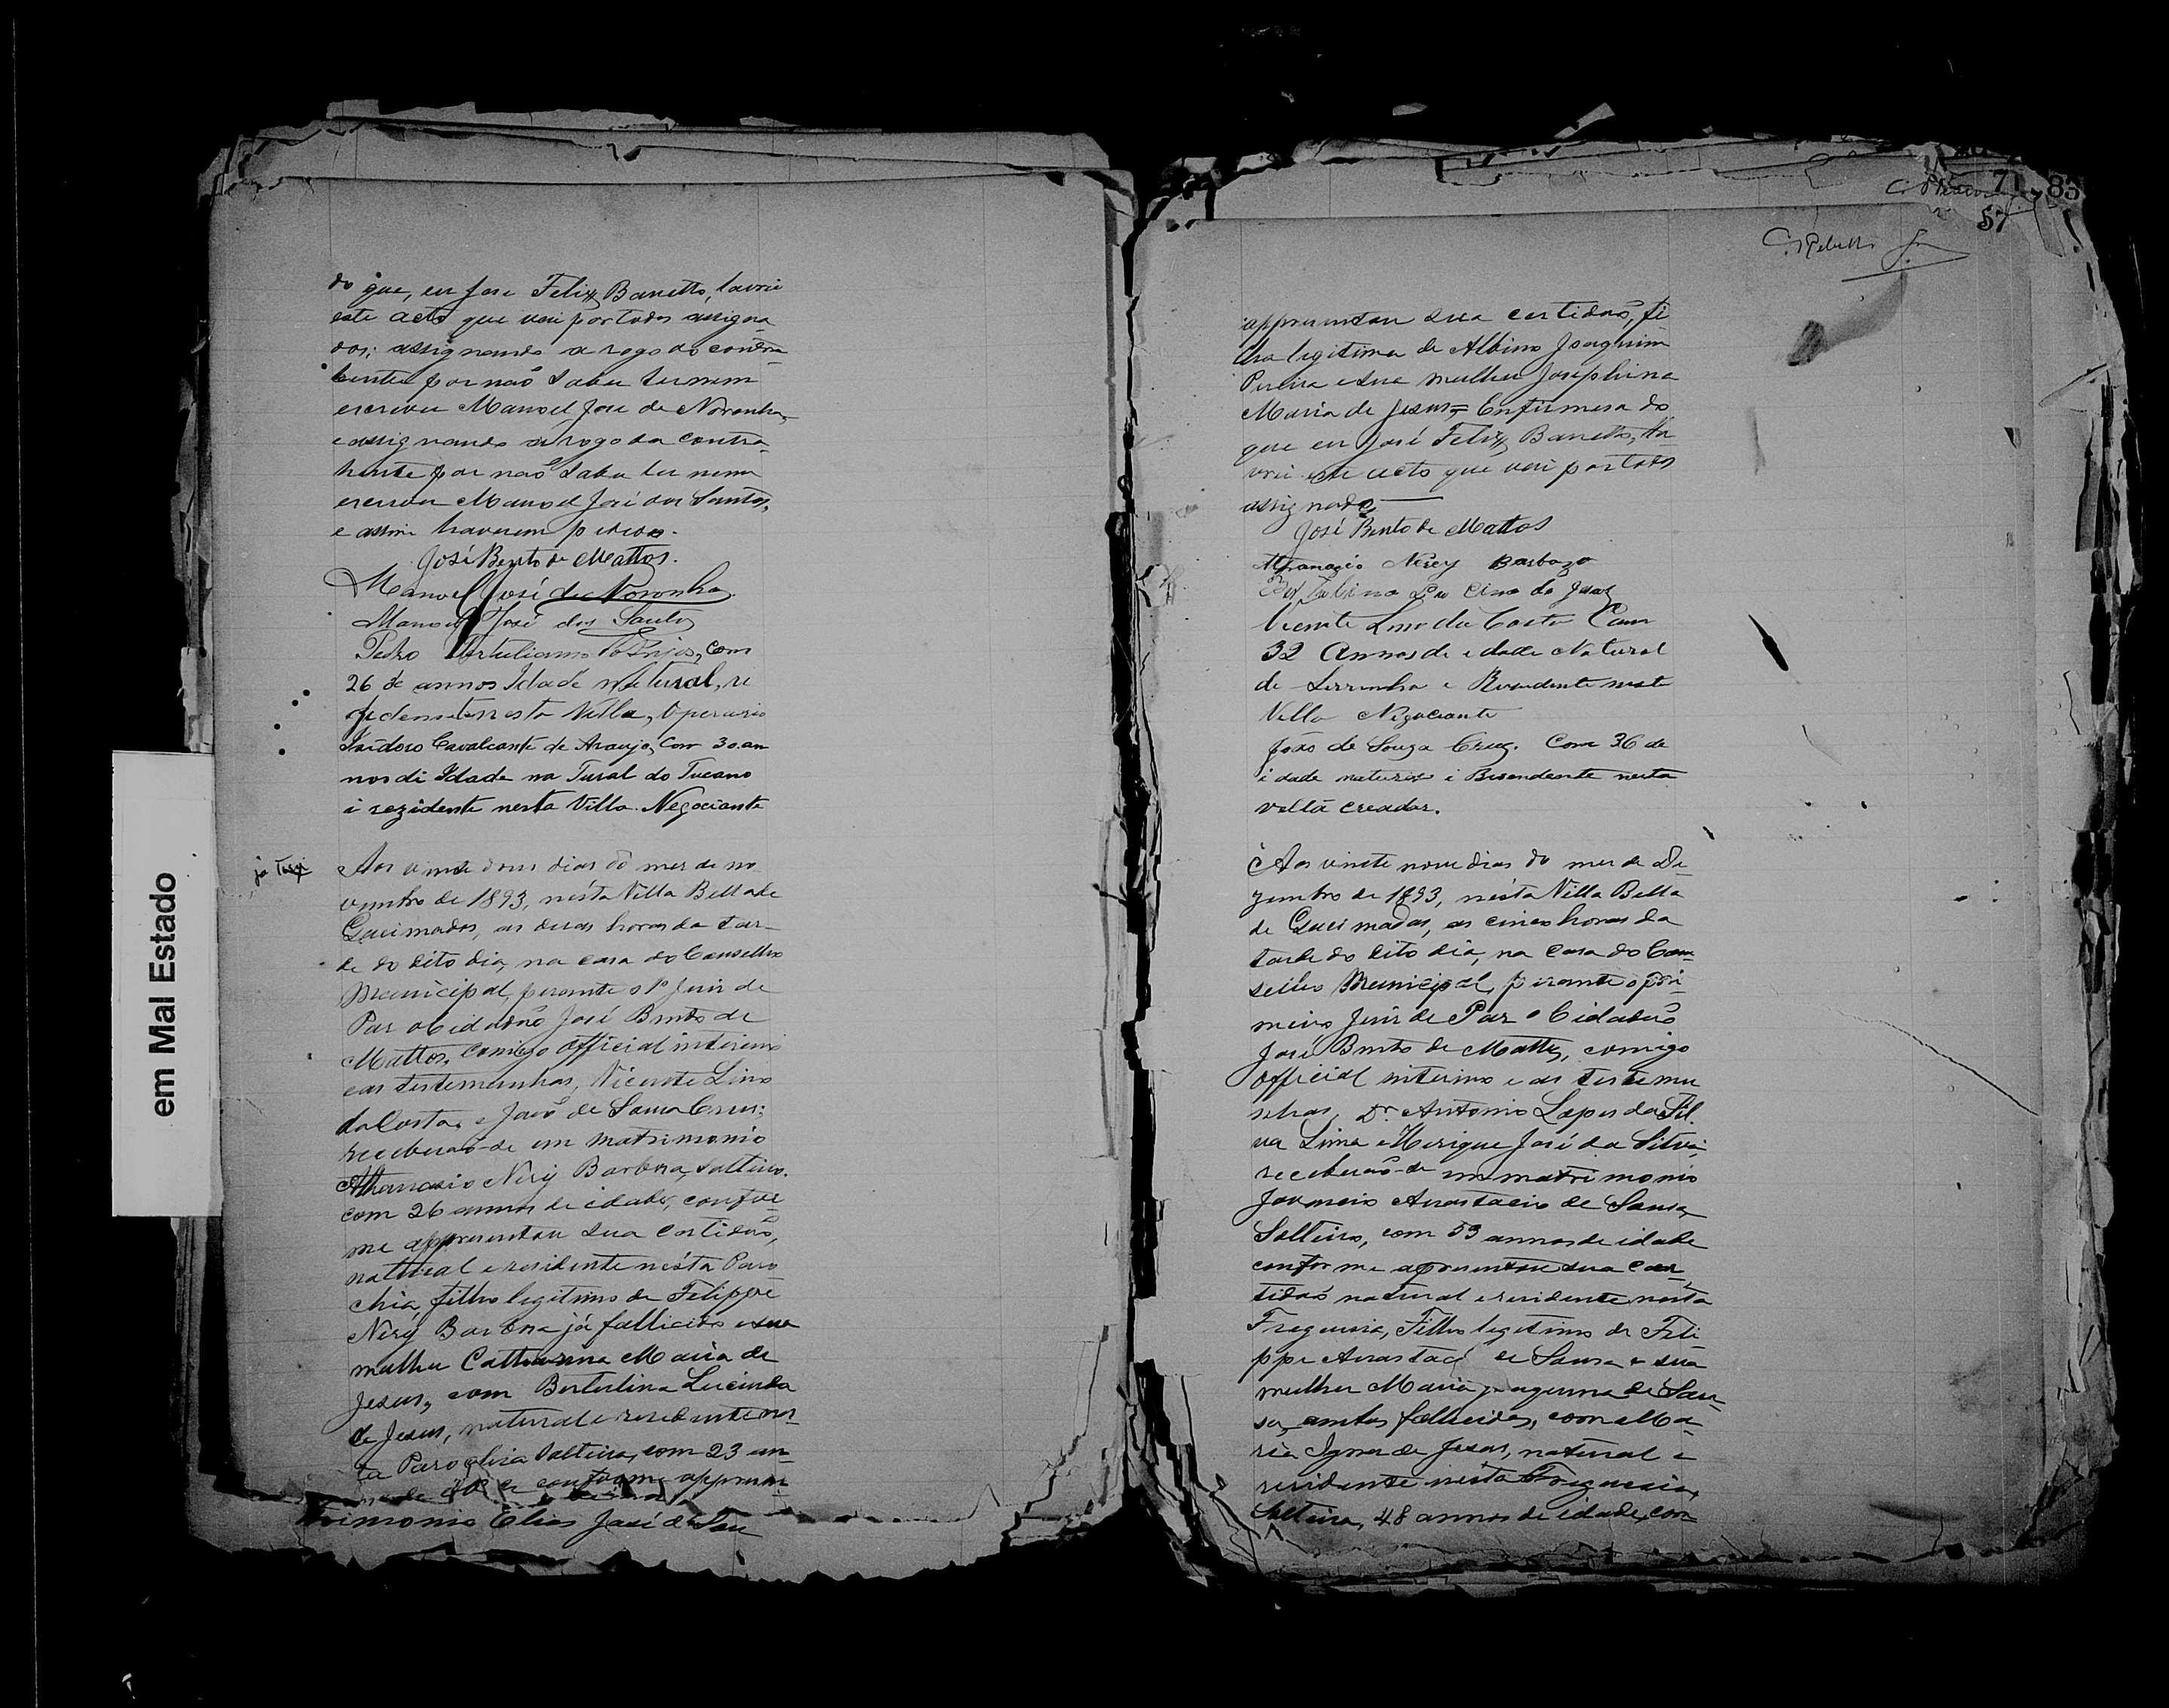 do que, eu José Felix Barretto, lavrei
este acto que vai por todos assigna-
dos; assignando a rogo do contra-
hente por não saber ler nem
escrever Manoel José de Noronha,
e assignando a rogo da contra-
hente por não saber ler nem
escrever Manoel José dos Santos,
e assim haverem pedido.
José Bento de Mattos.
Manoel José de Noronha
Manoel José dos Santos
Pedro Tertuliano dos Anjos, com
26 de annos Idade natural, re
zidente nesta Villa, Operario
Izidoro Cavalcante de Araujo, Com 30 an
nos di Idade na Tural do Tucano
i rezidente nesta Villa. Negociante
já
Aos vinte dous dias do mes de no
vembro de 1893, nésta Villa Bella de
Queimadas, as duas horas da tar-
de do dito dia, na casa do Conselho
Municipal, perante o 1º Juis de
Pas o cidadão José Bento de
Mattos, comigo Official interino
e as testemunhas, Vicente Lino
da Costa, e João de Sousa Crus;
receberão-se em matrimonio
Athanasio Néry Barbosa, solteiro.
com 26 annos de idade, confor-
me appresentou sua certidão,
natural e residente nésta Paro
chia, filho legitimo de Felippe
Néry Barbosa já fallicido e sua
mulher Catharina Maria de
Jesus, com Bertulina Lucinda
de Jesus, natural e residente nes-
ta Parochia solteira, com 23 an-
conforme appresen
trimonio Elias José de Sou
71 83
57
C. Rebello
appresentou sua certidão, fi
lha legitima de Albino Joaquim
Pereira e sua mulher Josephina
Maria de Jesus = Em firmesa do
que eu José Felix Barretto, la
vrei este acto que vai por todos
assignado
José Bento de Mattos
Athanazio Nerey Barbozo
Vicente Lino da Costa Com
32 Annos de idade Natural
de Serrinha e Rezendente nesta
Villa Negociante
João de Souza Cruz. Com 36 de
idade natural iResendeente nesta
villa creador.
Aos vinte nove dias do mes de De-
zembro de 1893, nésta Villa Bella
de Queimadas, as cinco horas da
tarde do dito dia, na casa do Con-
selho Municipal, perante o pri-
meiro Juis de Pas o Cidadão
José Bento de Mattos, comigo
Official interino e as testemu
nhas, Dr. Antonio Lopes da Sil-
va Lima e Herique José da Silva;
receberão-se em matrimonio
Anastacio de Sousa,
Solteiro, com 53 annos de idade
conforme apresentou sua cer
tidão natural e residente nesta
Freguesia, Filho legitimo de Feli
ppe Anastac de Sousa e sua
mulher Maria de Sou-
sa, ambos fallicidos, com Ma-
ria Ignes de Jesus, natural e
residente nésta Freguesia,
Solteira, 48 annos de idade, con-
em Mal Estado